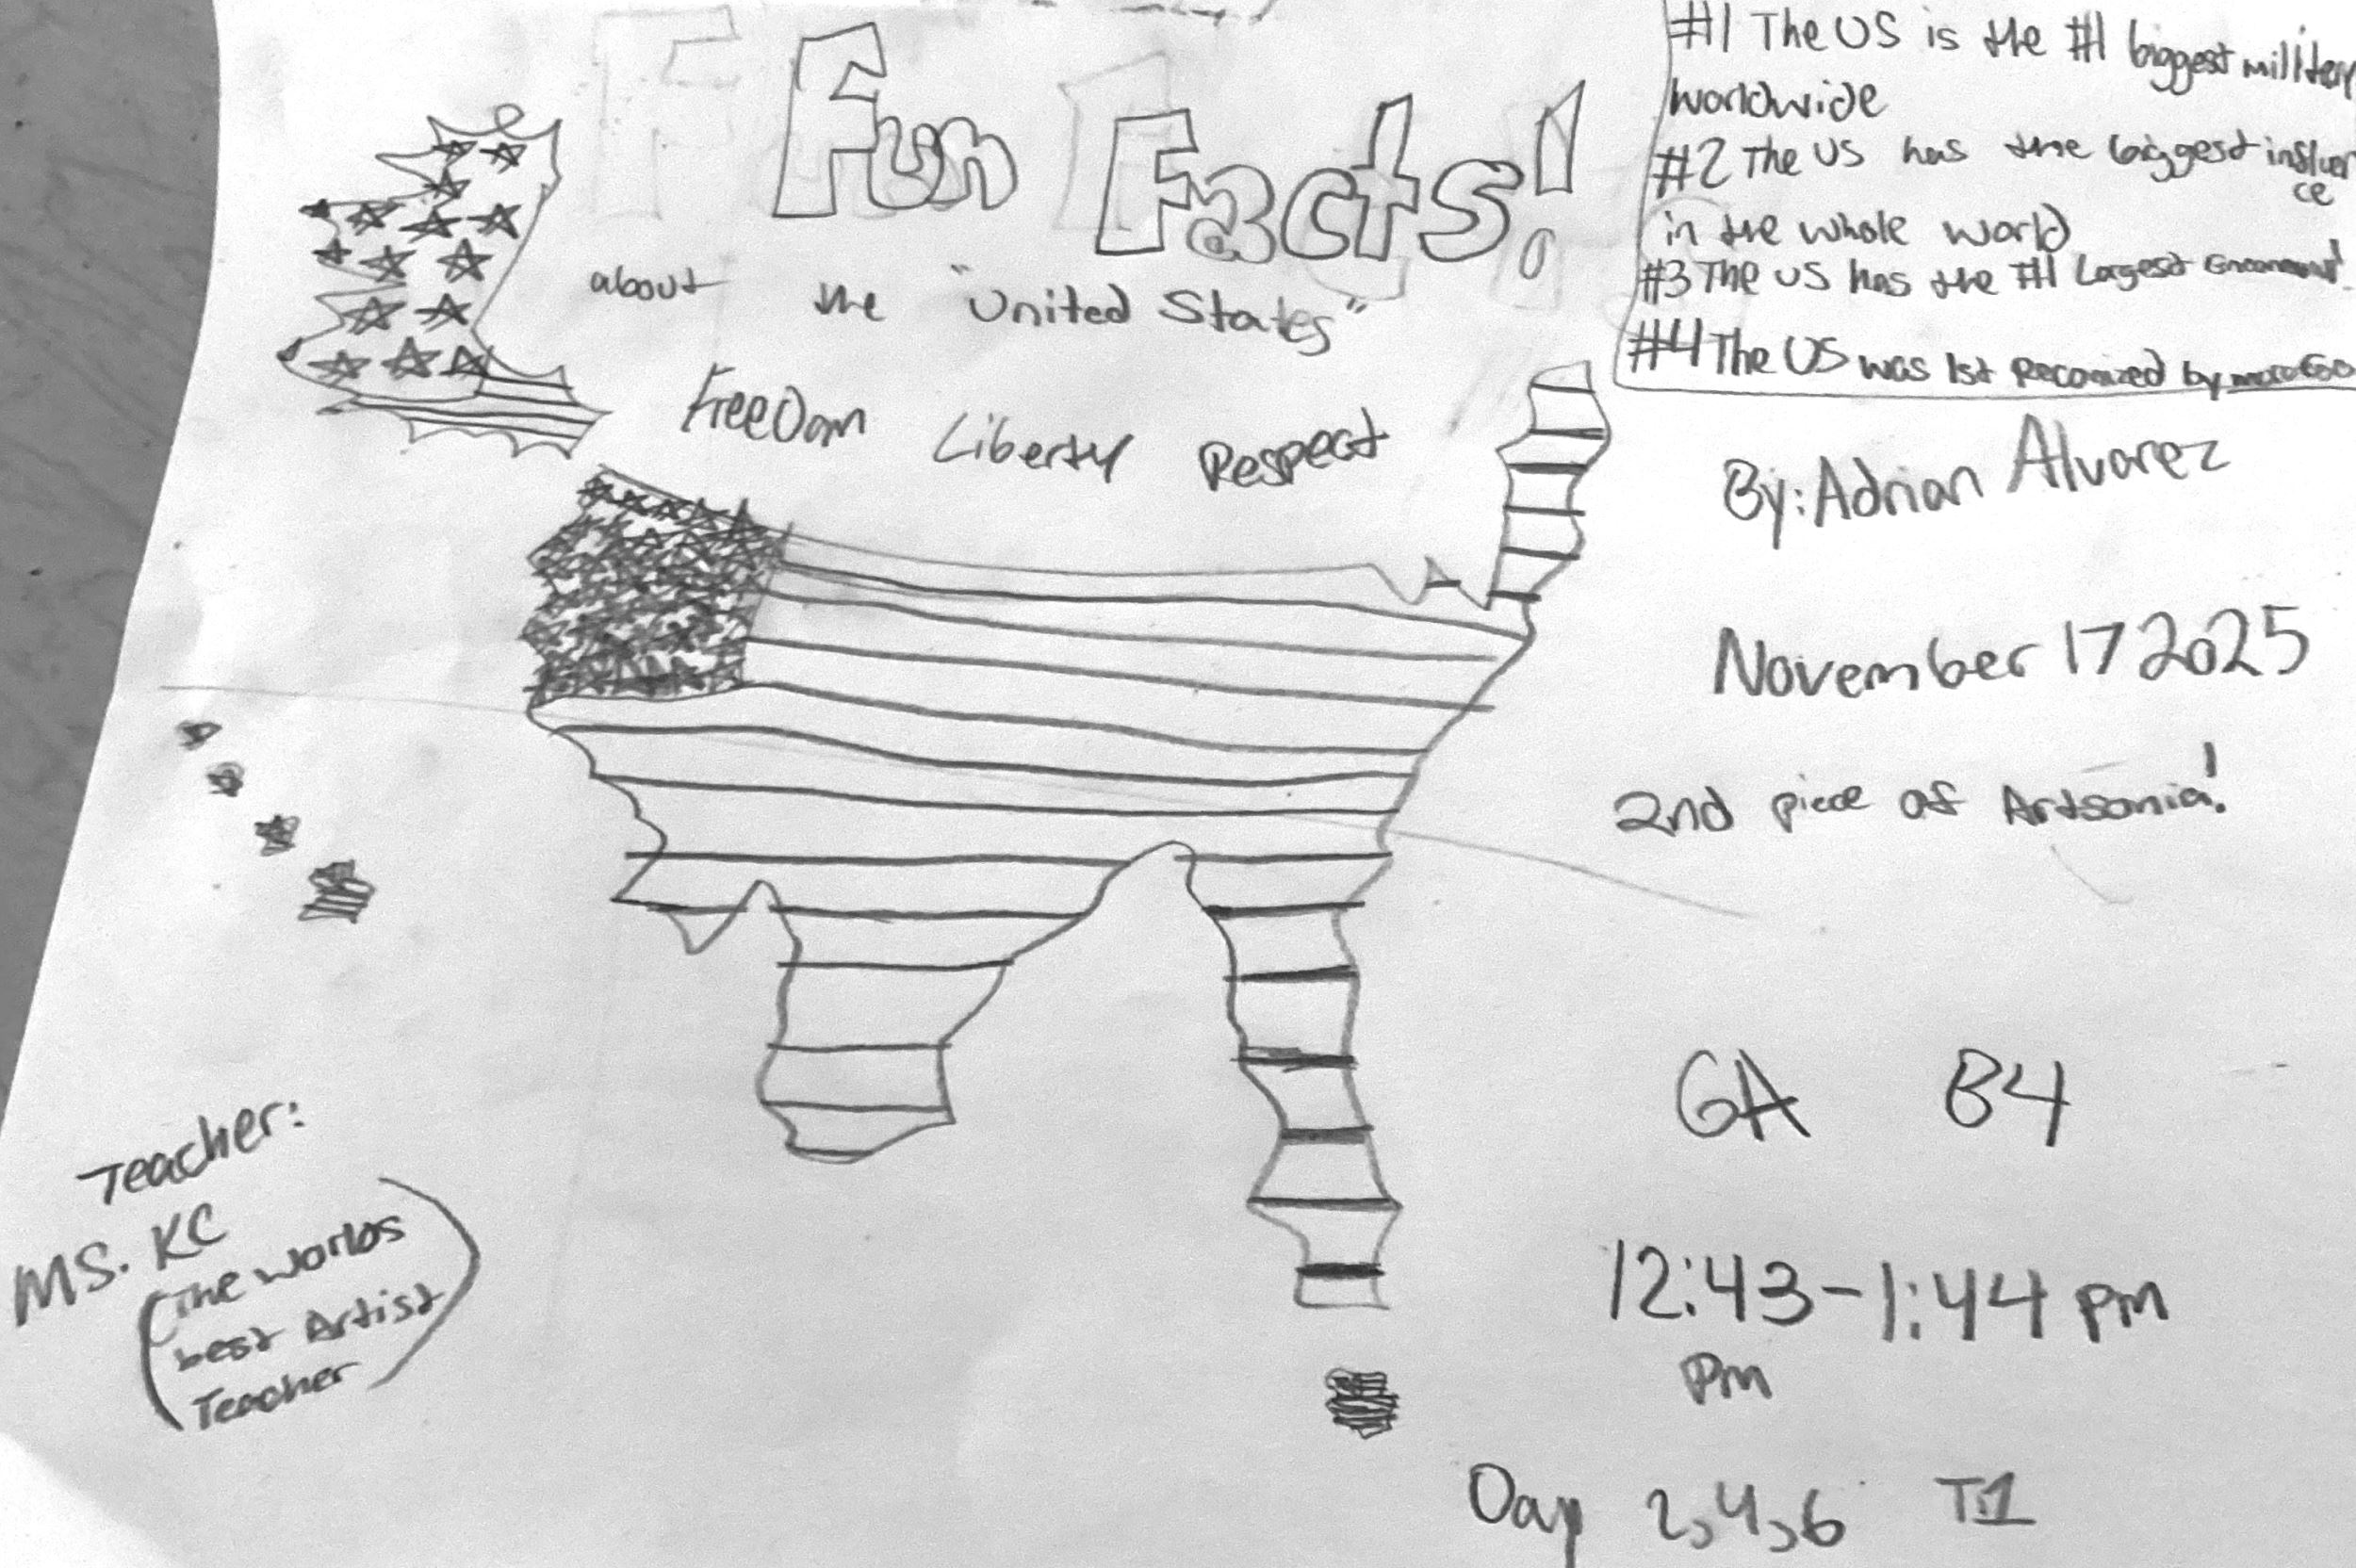 Fun Facts!
about the "United States"
FreeDom Liberty Respect
#1 The US is the #1 biggest military
worldwide
#2 The US has the biggest influen
ce
in the whole world
#3 The US has the #1 Largest
#4 The US was 1st Recognized by morocco
By: Adrian Alvarez
November 17 2025
2nd piece of Artsonia!
6A B4
12:43-1:44 pm
pm
Day 2,4,6 T1
Teacher:
MS. KC
(The worlds
best Artist
Teacher)